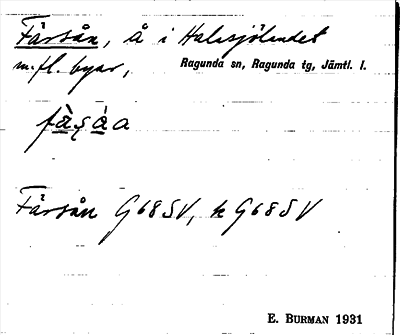 Färsån, å i Halasjölandet
m.fl. byar, Ragunda sn, Ragunda tg, Jämtl. l.
Färsån G68SV, k G68SV
E. BURMAN 1931